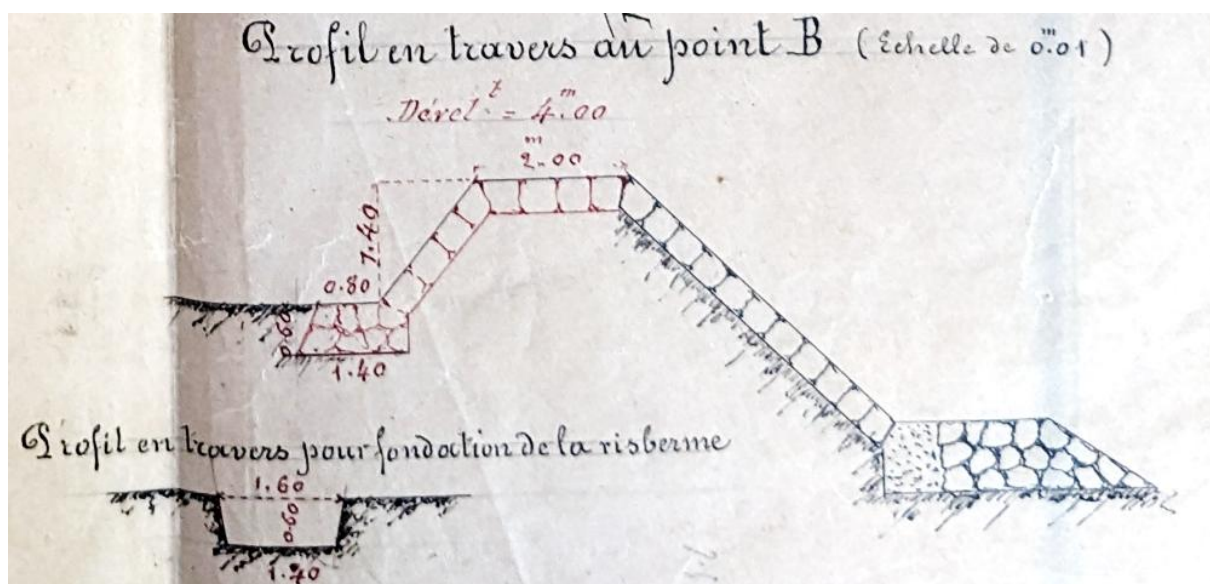 Profil en travers au point B (Echelle de 0.m01)
Dével.t = 4.m00
2.m00
1.40
0.80
0.60
1.40
Profil en travers pour fondation de la risberme
1.60
0.60
1.40